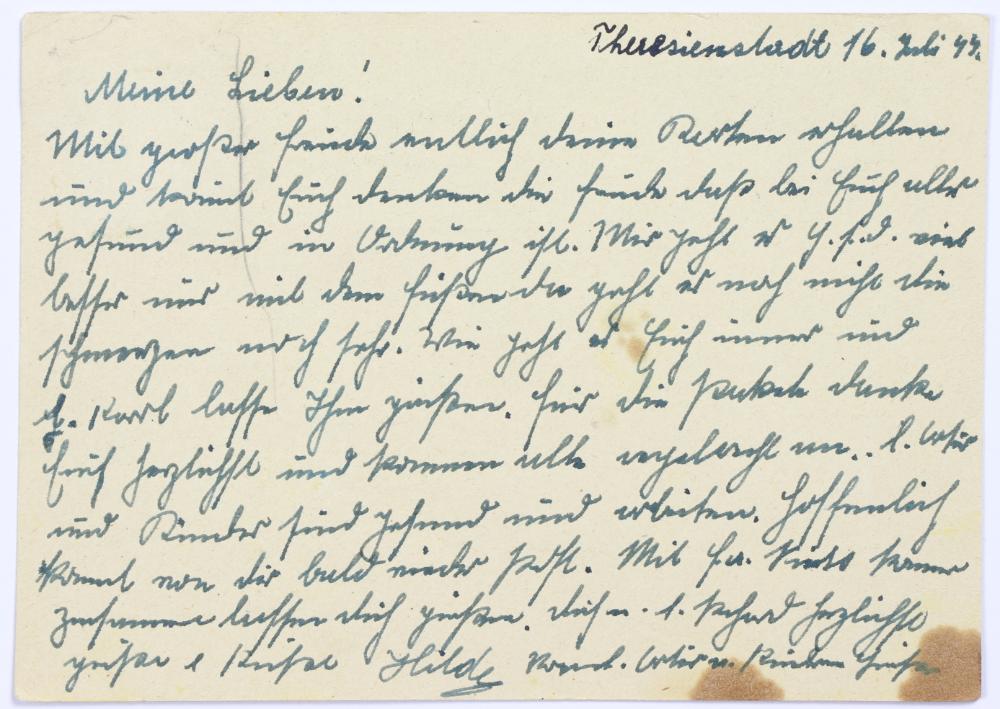 Theresienstadt 16. Juli 44.
Meine Lieben!
Mit großer Freude entlich deine Karten erhalten
und könnt Euch denken die Freude daß bei Euch alles
gesund und in Ordnung ist. Mir geht es G.s.d. viel
besser nur mit dem Füßen da geht es noch nicht die
schmerzen noch sehr. Wie geht es Euch immer und
l. Karl lasse Ihm grüßen. Für die Pakete danke
Euch herzlichst und kommen alle an. l.
und Kinder sind gesund und arbeiten. Hoffenlich
kommt von dir bald wieder Post. Mit Fr. komme
zusamme lassen dich grüßen. dich u. l. herzlichst
grüße u Küße Hilde u. Kindern